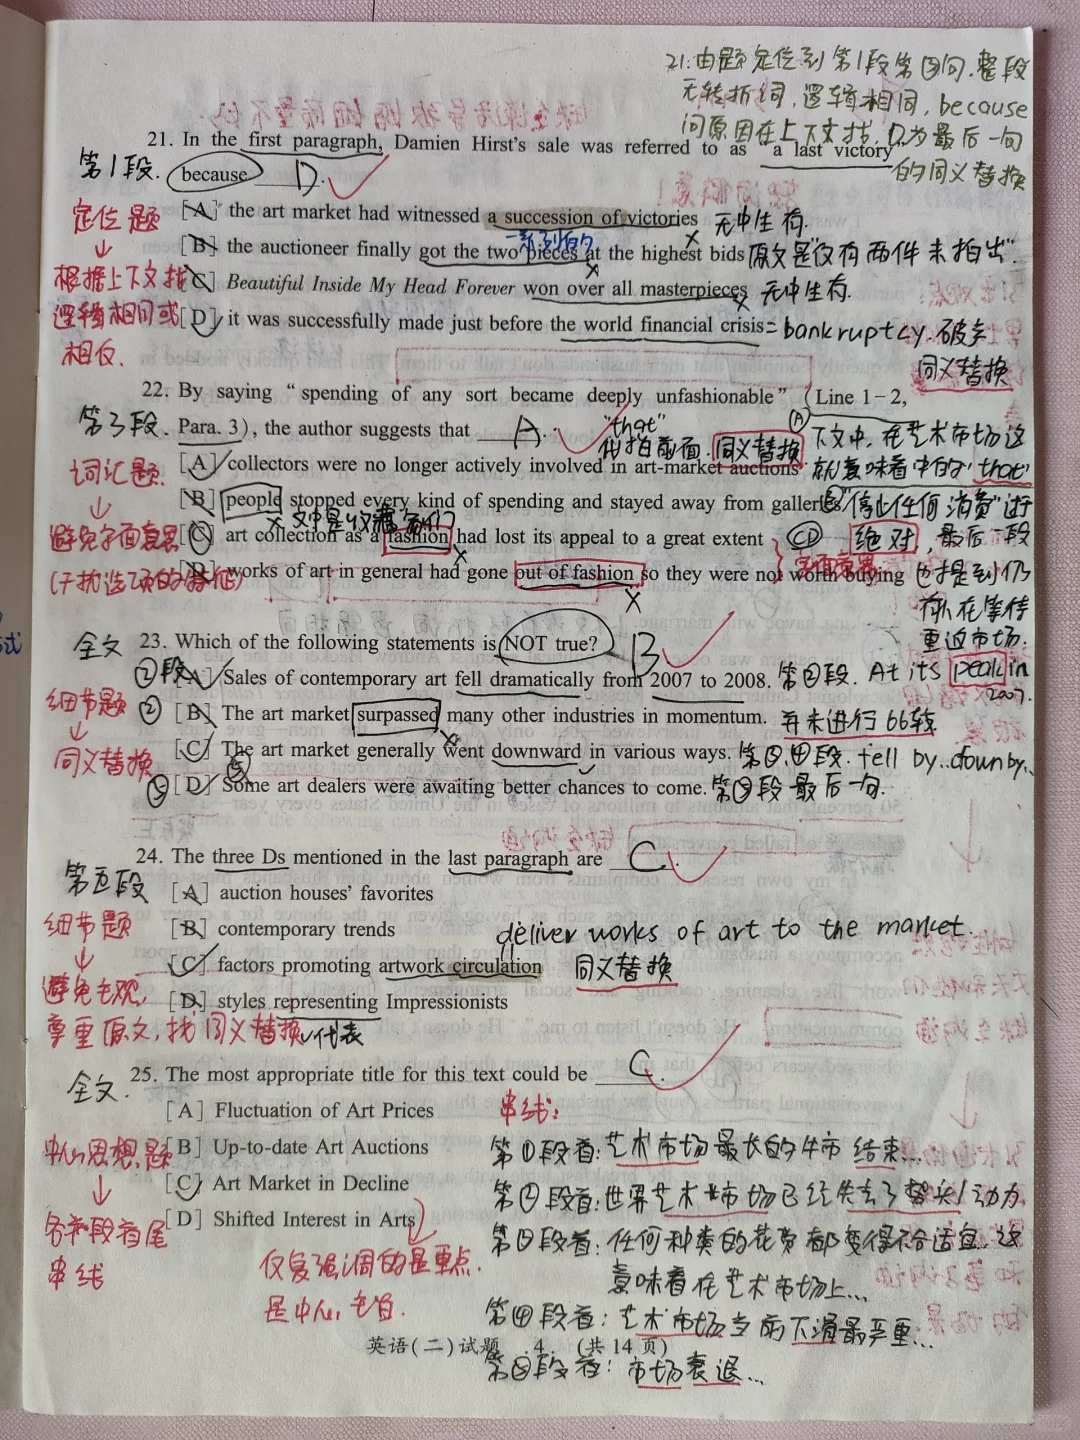 21:由题定位到第1段第④句.整段
无转折词,逻辑相同,because
问原因在上下文找,D为最后一句
的同义替换
21. In the first paragraph, Damien Hirst's sale was referred to as “a last victory”
第1段. because D.
定位题 [A] the art market had witnessed a succession of victories 无中生有.
一系列的
[B] the auctioneer finally got the two pieces at the highest bids 原文是"仅有两件未拍出".
根据上下文找 [C] Beautiful Inside My Head Forever won over all masterpieces 无中生有.
逻辑相同或 [D] it was successfully made just before the world financial crisis = bankruptcy.破产
相反. 同义替换
22. By saying “spending of any sort became deeply unfashionable” (Line 1-2,
第3段. Para. 3), the author suggests that A. "that" Ⓐ下文中,在艺术市场这
代指前面.同义替换 就意味着中的'that'
词汇题. [A] collectors were no longer actively involved in art-market auctions
[B] people stopped every kind of spending and stayed away from galleries Ⓑ"停止任何消费"过于
文中是收藏家们
避免字面意思 [C] art collection as a fashion had lost its appeal to a great extent ⒸⒹ 绝对,最后一段
字面意思
(干扰选项的特征) [D] works of art in general had gone out of fashion so they were not worth buying 也提到仍
有人在等待
重返市场.
全文 23. Which of the following statements is NOT true? B
②段 [A] Sales of contemporary art fell dramatically from 2007 to 2008. 第②段. At its peak in
2007.
细节题 ② [B] The art market surpassed many other industries in momentum. 并未进行比较
同义替换 [C] The art market generally went downward in various ways. 第④段. fell by..down by..
⑤ [D] Some art dealers were awaiting better chances to come. 第⑤段最后一句.
24. The three Ds mentioned in the last paragraph are C.
第五段 [A] auction houses' favorites
细节题 [B] contemporary trends
deliver works of art to the market.
[C] factors promoting artwork circulation 同义替换
避免主观, [D] styles representing Impressionists
尊重原文,找同义替换 代表
25. The most appropriate title for this text could be C.
全文. [A] Fluctuation of Art Prices 串线:
中心思想题 [B] Up-to-date Art Auctions 第①段首:艺术市场最长的牛市结束...
[C] Art Market in Decline 第②段首:世界艺术市场已经失去了势头/动力
各和段首尾 [D] Shifted Interest in Arts 第③段首:任何种类的花费都变得不合适宜.这
串线 意味着在艺术市场上...
反复强调的是重点.
是中心,主旨. 第④段首:艺术市场当前下滑最严重...
英语(二)试题 . 4 . (共14页)
第⑤段首:市场衰退...